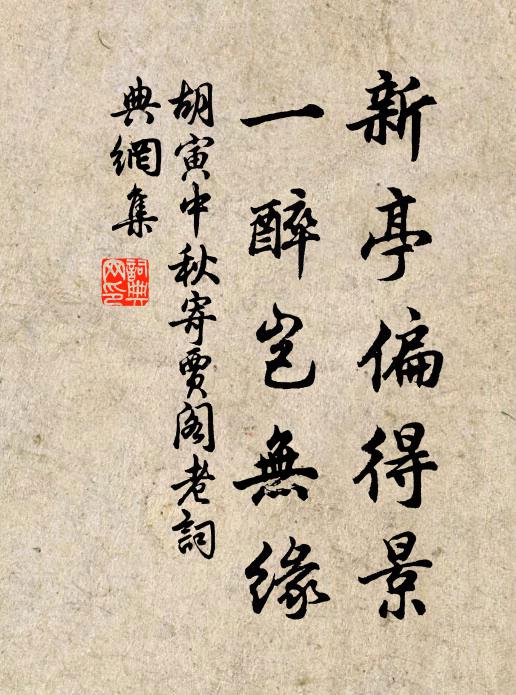 新亭偏得景
一醉岂無緣
胡寅中秋寄賈阁老詞
典網集
詞典
网印